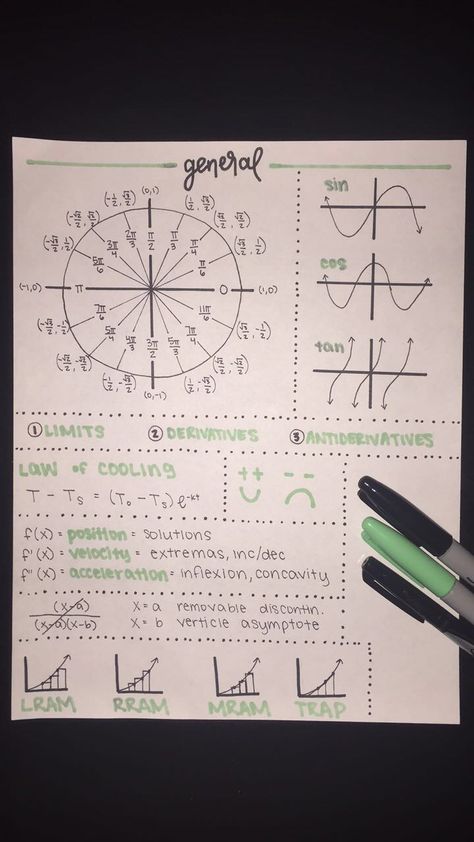 general
(0,1)
(-1/2, √3/2) (1/2, √3/2)
(-√2/2, √2/2) (√2/2, √2/2)
(-√3/2, 1/2) (√3/2, 1/2)
2π/3 π/2 π/3
3π/4 π/4
5π/6 π/6
(-1,0) π 0 (1,0)
7π/6 11π/6
5π/4 7π/4
4π/3 3π/2 5π/3
(-√3/2, -1/2) (√3/2, -1/2)
(-√2/2, -√2/2) (√2/2, -√2/2)
(-1/2, -√3/2) (1/2, -√3/2)
(0,-1)
sin
cos
tan
① LIMITS ② DERIVATIVES ③ ANTIDERIVATIVES
LAW of COOLING
T - Ts = (T₀ - Ts) e^-kt
++ --
f(x) = position = solutions
f'(x) = velocity = extremas, inc/dec
f"(x) = acceleration = inflexion, concavity
(x-a)/(x-a)(x-b)
x = a removable discontin.
x = b verticle asymptote
LRAM RRAM MRAM TRAP